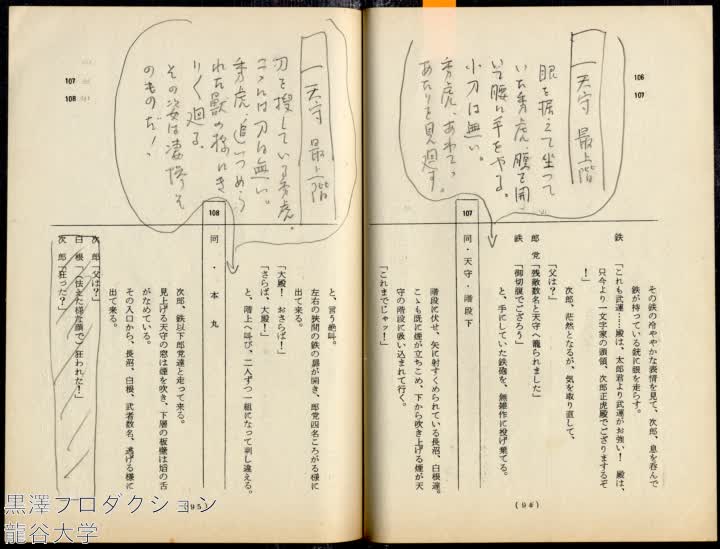 106
107
天守 最上階
眼を据えて坐って
いた秀虎、腰を開
いて腰に手をやる。
小刀は無い。
秀虎、あわてゝ
あたりを見廻す。
その鉄の冷ややかな表情を見て、次郎、息を呑んで
鉄が持っている銃に眼を走らす。
鉄「これも武運……殿は、太郎君より武運がお強い！ 殿は、
只今より一文字家の頭領、次郎正虎殿でござりまするぞ
！」
次郎、茫然となるが、気を取り直して、
「父は？」
郎党「残敵数名と天守へ籠られました」
鉄「御切腹でござろう」
と、手にしていた鉄砲を、無雑作に投げ棄てる。
107 同・天守・階段下
階段に伏せ、矢に射すくめられている長沼、白根達。
こゝも既に煙が立ちこめ、下から吹き上げる煙が天
守の階段に吸い込まれて行く。
「これまでじゃッ！」
(94)
107
108
天守 最上階
刀を捜している秀虎。
こゝには刀は無い。
秀虎、追いつめら
れた獣の様に
廻る。
その姿は凄惨そ
のものだ！
と、言う絶叫。
左右の狭間の鉄の扉が開き、郎党四名ころがる様に
出て来る。
「大殿！ おさらば！」
「さらば、大殿！」
と、階上へ叫び、二人ずつ一組になって刺し違える。
108 同・本丸
次郎、鉄以下郎党達と走って来る。
見上げる天守の窓は煙を吹き、下層の板樋は焔の舌
がなめている。
その入口から、長沼、白根、武者数名、逃げる様に
出て来る。
次郎「父は？」
白根「（怯えた様な顔で）狂われた！」
次郎「狂った？」
(95)
黒澤プロダクション
龍谷大学